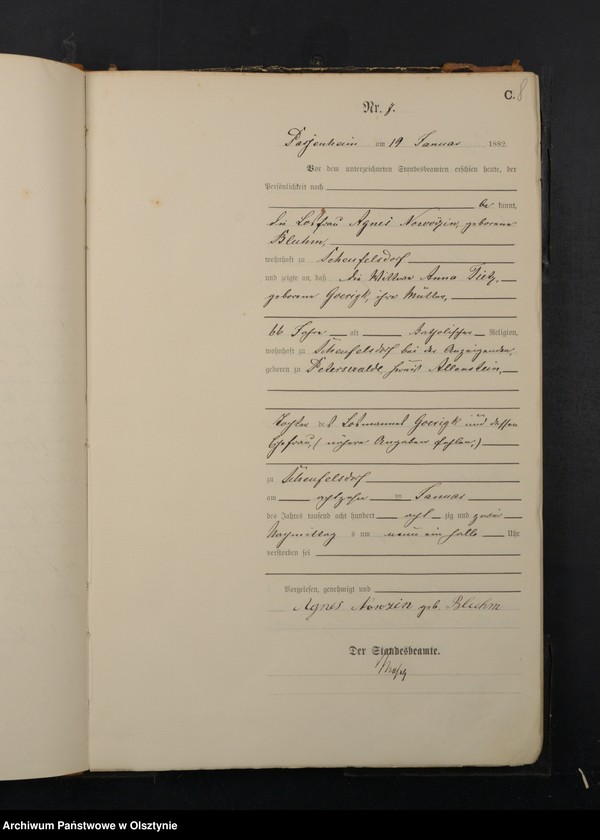 C. 8
Nr. 8.
Passenheim am 19 Januar 1882.
Vor dem unterzeichneten Standesbeamten erschien heute, der
Persönlichkeit nach
be kannt,
die Losfrau Agnes Nowozin, geborene
Bluhm,
wohnhaft zu Scheufelsdorf
und zeigte an, daß die Wittwe Anna Tietz,
geborene Goerigk, ihre Mutter,
66 Jahre alt Katholischer Religion,
wohnhaft zu Scheufelsdorf bei der Anzeigenden,
geboren zu Peterswalde, Kreis Allenstein,
Tochter des Losmannes Goerigk und dessen
Ehefrau, (nähere Angaben fehlen,)
zu Scheufelsdorf
am achtzehn ten Januar
des Jahres tausend acht hundert acht zig und zwei
Nachmittag s um neun ein halb Uhr
verstorben sei
Vorgelesen, genehmigt und
Agnes Nowzin geb. Bluhm
Der Standesbeamte.
Archiwum Państwowe w Olsztynie